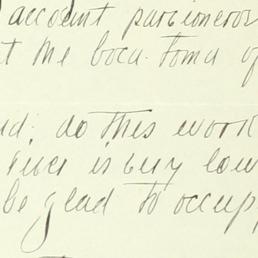 account parcioneros
at the boca-toma of
do this work
river is very low
be glad to occupy